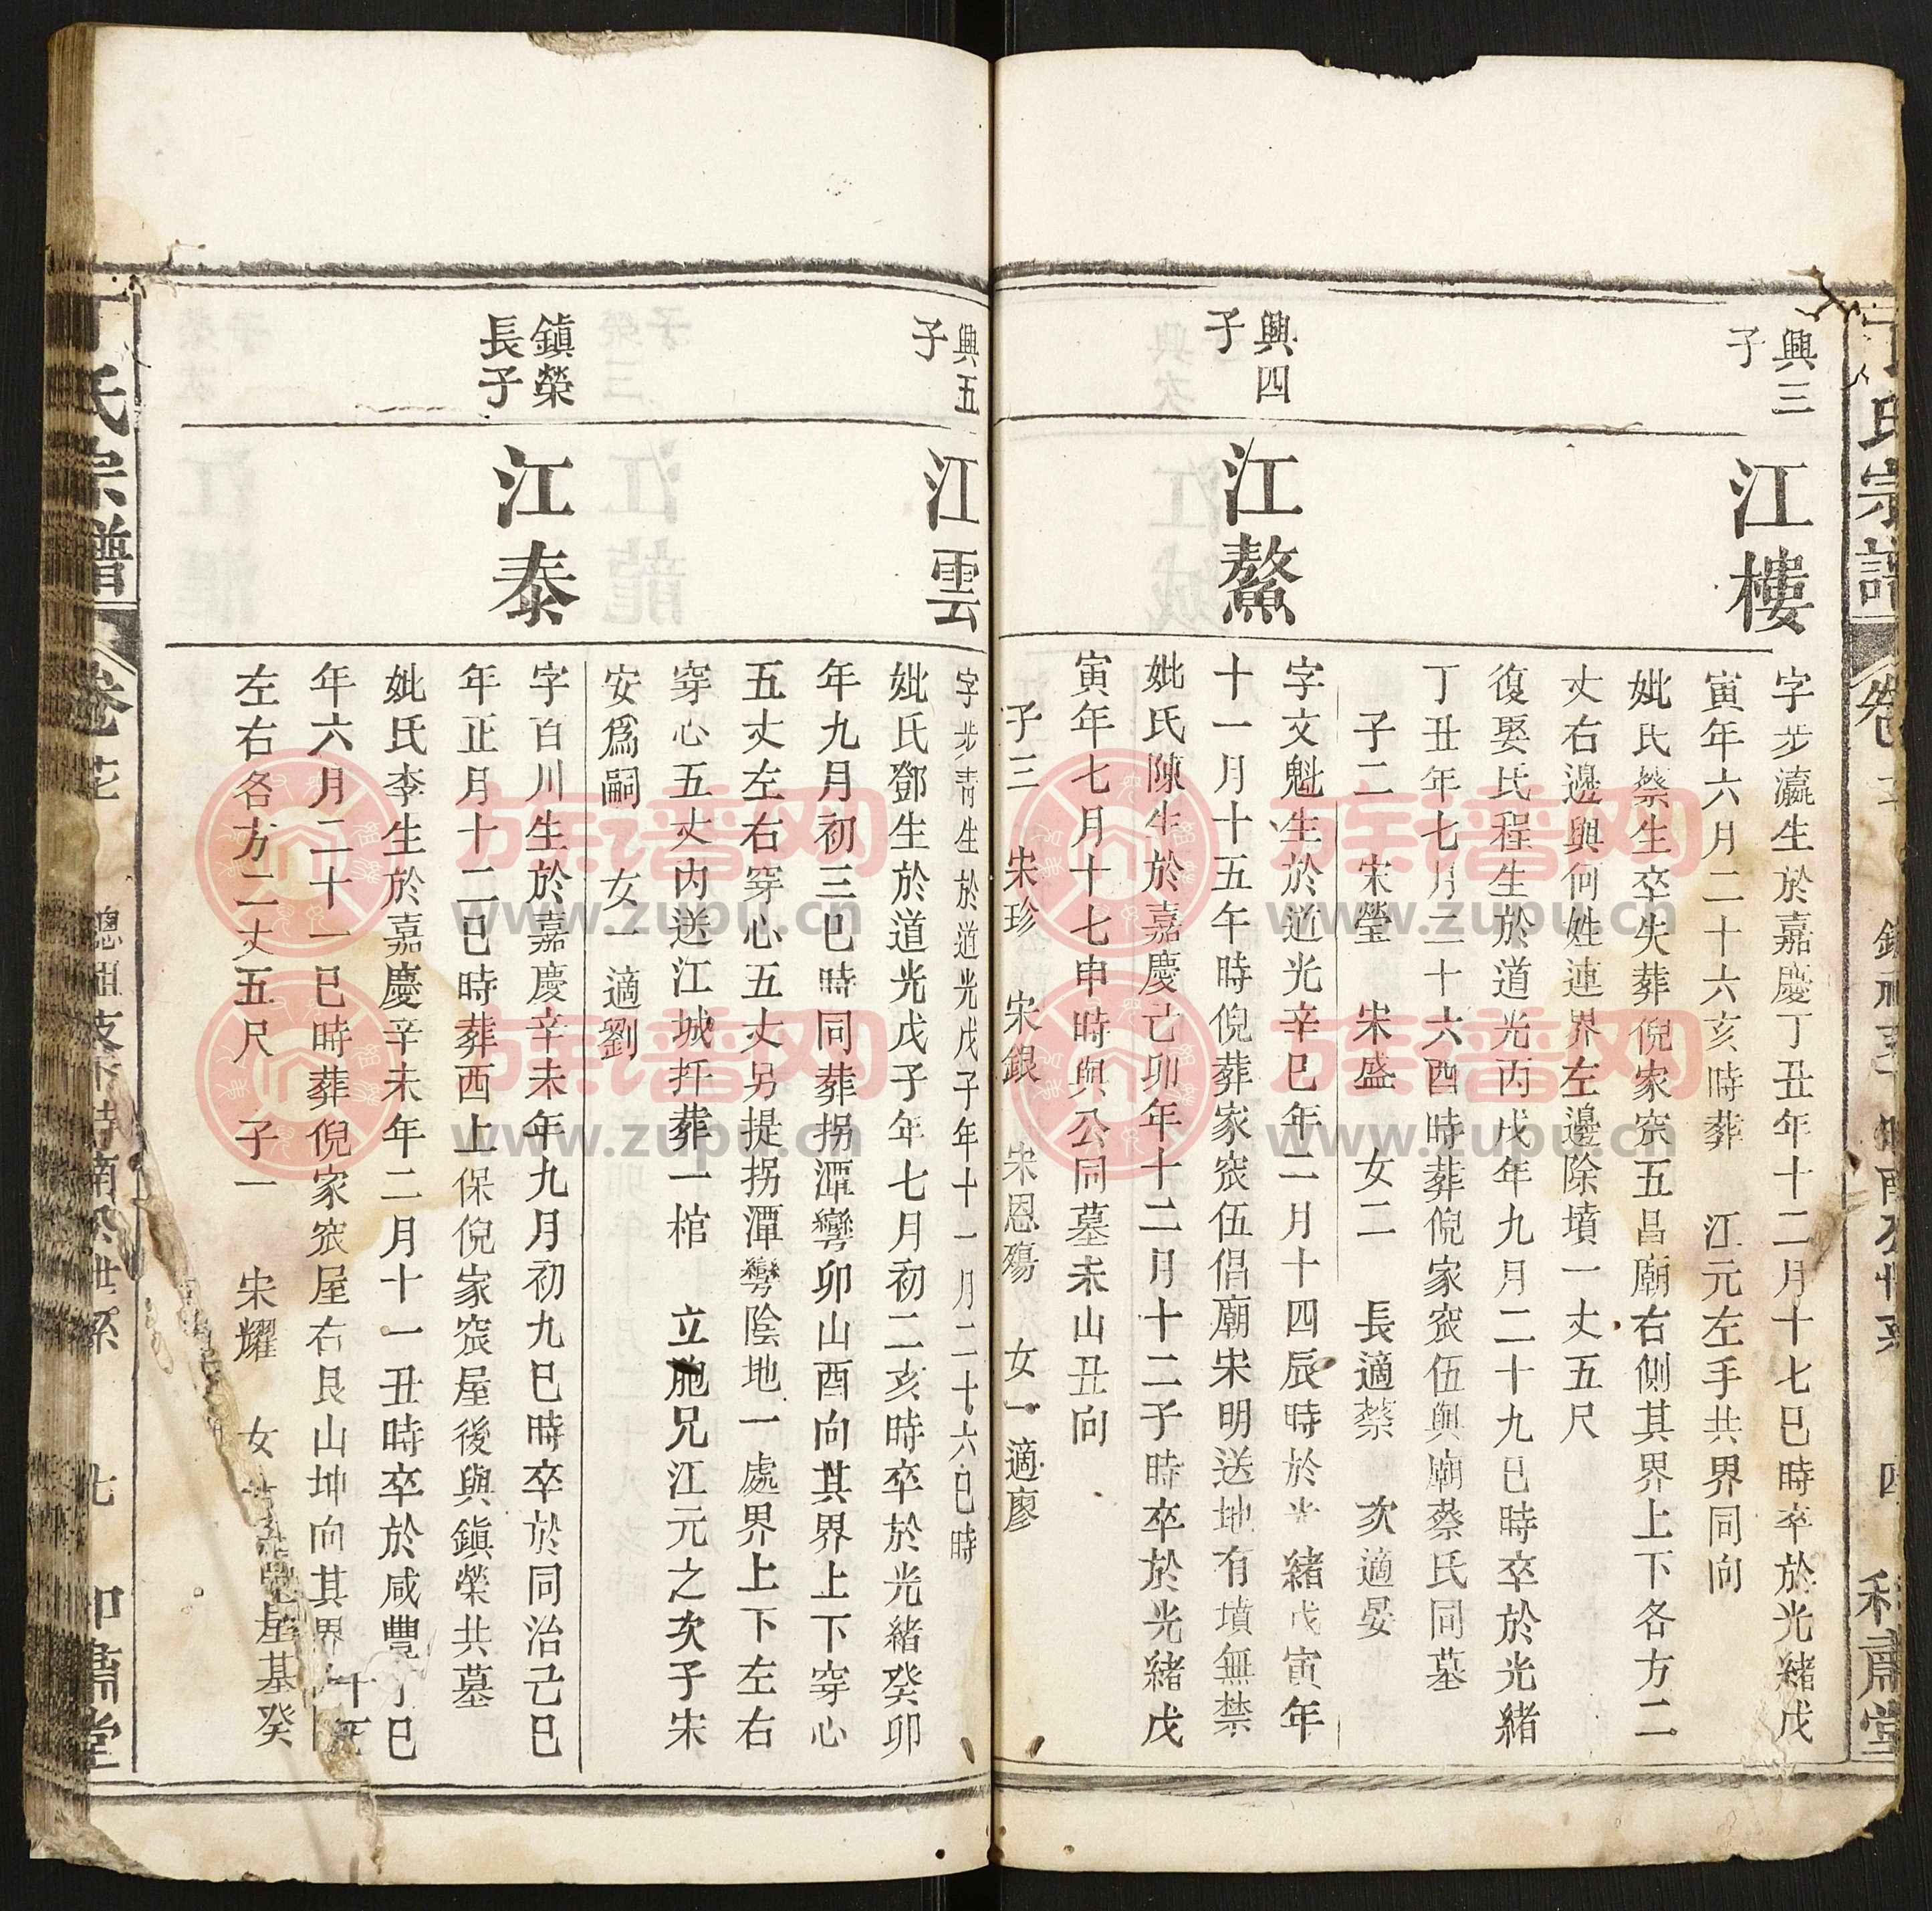 興三
子
江樓
字步瀛生於嘉慶丁丑年十二月十七巳時卒於光緒戊
寅年六月二十六亥時葬 江元左手共界同向
妣氏蔡生卒失葬倪家窊五昌廟右側其界上下各方二
丈右邊與何姓連界左邊除墳一丈五尺
復娶氏程生於道光丙戌年九月二十九巳時卒於光緒
丁丑年七月三十六酉時葬倪家窊伍與廟蔡氏同墓
子二 宋瑩 宋盛 女二 長適蔡 次適晏
興四
子
江鰲
字文魁生於道光辛巳年二月十四辰時於光緒戊寅年
十一月十五午時倪葬家窊伍倡廟宋明送地有墳無禁
妣氏陳生於嘉慶己卯年十二月十二子時卒於光緒戊
寅年七月十七申時與公同墓未山丑向
子三 宋珍 宋銀 宋恩殤 女一適廖
興五
子
江雲
字步青生於道光戊子年十一月二十六巳時
妣氏鄧生於道光戊子年七月初二亥時卒於光緒癸卯
年九月初三巳時同葬拐潭彎卯山酉向其界上下穿心
五丈左右穿心五丈另提拐潭彎陰地一處界上下左右
穿心五丈內送江城扦葬一棺 立胞兄江元之次子宋
安為嗣 女一適劉
鎮榮
長子
江泰
字百川生於嘉慶辛未年九月初九巳時卒於同治己巳
年正月十二巳時葬西上保倪家窊屋後與鎮榮共墓
妣氏李生於嘉慶辛未年二月十一丑時卒於咸豐丁巳
年六月二十一巳時葬倪家窊屋右艮山坤向其界
左右各方二丈五尺 子一 宋耀 女 基癸
氏宗譜
卷
堂
氏宗譜
堂
族谱网
www.zupu.cn
族谱网
www.zupu.cn
族谱网
www.zupu.cn
族谱网
www.zupu.cn